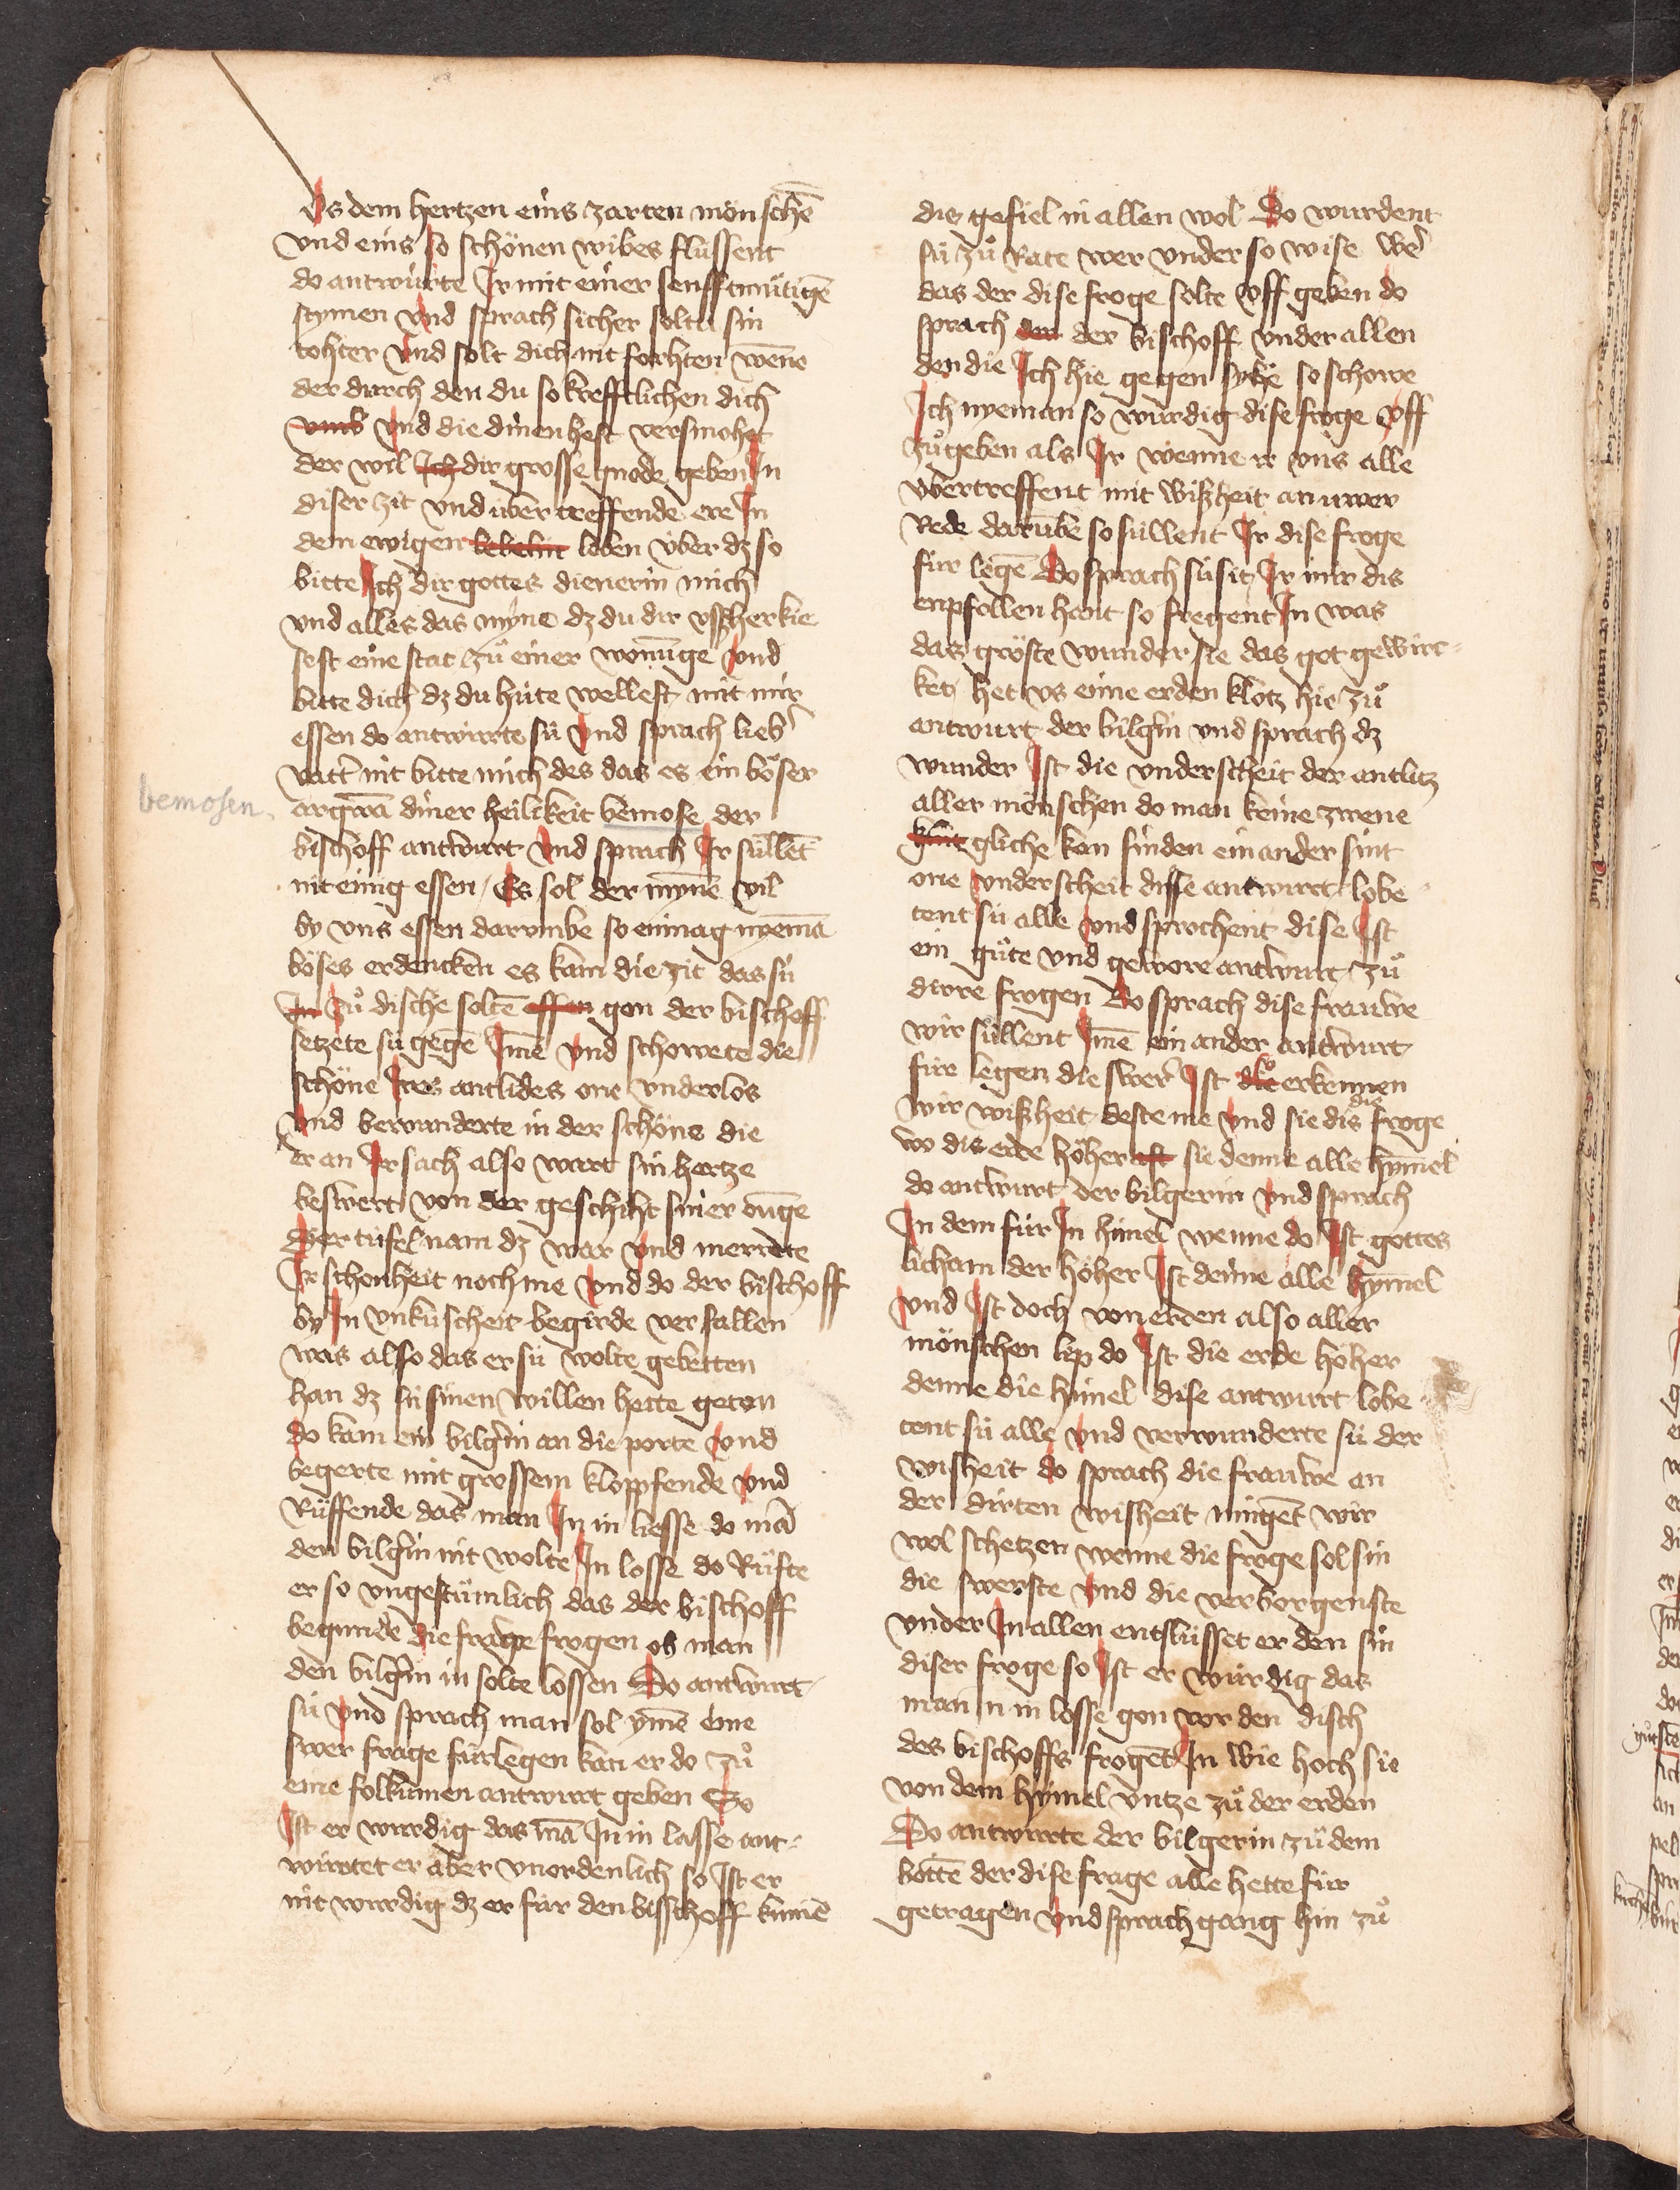 Vs dem hertzen eins zarten mönschē
vnd eins so schönen wibes flussent
do antwürte Ir mit einer senfftmütigē
stymen vnd sprach sicher soltu sin
tohter vnd solt dich nit forhten wēne
der durch den du so krefftlichen dich
vmb vnd die dinen hest versmohet
der wil Ich dir grosse gnode geben In
diser zit vnd über treffende ere In
dem ewigen lebelin leben über dz so
bitte Ich dir gottes dienerin mich
vnd alles das myne dz du dir vsserkie
sest eine stat zů einer wonūge vnd
bitte dich dz du hüte wellest mit mir
essen do antwürte sü vnd sprach lieb'
vatt' nit bitte mich des das es ein böser
argwā diner heilikeit bemose der
bischoff antwurt vnd sprach Ir süllēt
nit einig essen / Es sol der mynē vil
by vns essen darumbe so enmag nyemā
böses erdencken es kam die zit das sü
In zů dische soltē essen gon der bischoff
setzete sü gegē Imē vnd schowete die
schöne Ires antlides one vnderlos
vnd verwunderte in der schöne die
er an Ir sach also wart sin hertze
beswert von der geschiht siner ougē
Der tüfel nam dz war vnd merrete
Ir schonheit noch me vnd do der bischoff
by In vnküscheit begirde verfallen
was also das er sü wolte gebetten
han dz sü sinen willen hette geton
do kam ein bilg'in an die porte vnd
begerte mit grossem klopfende vnd
Rüffende das man In in liesse do mā
den bilg'in nit wolte In losse do Rüfte
er so vngestümlich das der bischoff
begunde die frawe frogen ob man
den bilg'in in solte lossen Do antwurt
sü vnd sprach man sol ymē eine
swer frage fürlegen kan er do zů
eine folkumen antwurt geben So
Ist er wurdig das mā In in lasse ant-
würtet er aber vnordenlich so Ist er
nit wurdig dz er für den bisschoff kumē
bemosen.
dis gefiel in allen wol Do wurdent
sü zů Rate wer vnder so wise wer'
das der dise froge solte vff geben do
sprach den der bischoff vnder allen
den die Ich hie gegen syhe so schowe
Ich nyeman so würdig dise froge vff
zůgeben als Ir wenne ir vns alle
vbertreffent mit wißheit an uwer
Rede darūbe so süllent Ir dise froge
für legē Do sprach sü sit Ir mir dis
enpfollen hant so fregent In was
das gröste wunder sie das got gewür-
ket het vs eime erden klotz hie zů
antwurt der bilg'in vnd sprach dz
wunder Ist die vnderscheit der antlitz
aller mönschen do man keine zwene
gliche kan finden ein ander sint
one vnderscheit disse antwurt lobe-
tent sü alle vnd sprochent dise Ist
ein gůte vnd gewore antwurt zů
dirre frogen Do sprach dise frauwe
wir süllent Imē ein ander antwurt
füre legen die swer' Ist erkennen
wir wißheit deste me vnd sie dis die froge
wo die erde höher ist sie denne alle hymel
do antwurt der bilgerin vnd sprach
In dem für In himel wenne do Ist gottes
licham der höher Ist denne alle hymel
vnd Ist doch von erden also aller
mönschen lip do Ist die erde höher
denne die himel dise antwurt lobe-
tent sü alle vnd verwunderte sü der
wisheit do sprach die frauwe an
der dirten wisheit mügēt wir
wol schetzen wenne die froge sol sin
die swerste vnd die verborgenste
vnder In allen entslüsset er den sin
diser froge so Ist er würdig das
man in in losse gon vor den disch
des bischoffs frogēt In wie hoch sie
von dem hymel vntze zů der erden
Do antwurte der bilgerin zů dem
bottē der dise frage alle hette für
getragen vnd sprach gang hin zů